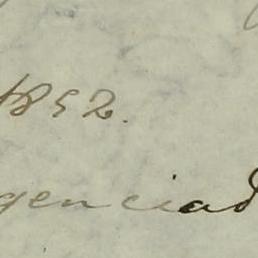 1852.
genciad